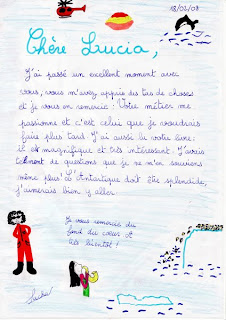 18/02/08
Chère Lucia,
J'ai passé un excellent moment avec
vous, vous m'avez appris des tas de choses
et je vous en remercie! Votre métier me
passionne et c'est celui que je voudrais
faire plus tard. J'ai aussi lu votre livre:
il est magnifique et très intéressant. J'avais
tellement de questions que je ne m'en souviens
même plus. L'Antartique doit être splendide,
j'aimerais bien y aller.
Je vous remercie du
fond du cœur et
très bientôt!